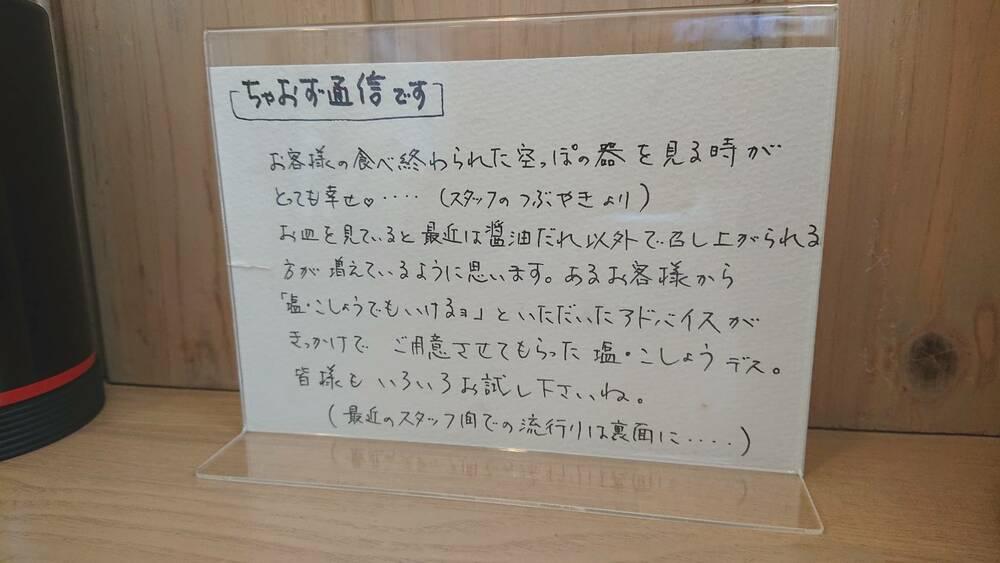 ちゃおず通信です
お客様の食べ終わられた空っぽの器を見る時が
とても幸せ♡・・・・（スタッフのつぶやきより）
お皿を見ていると最近は醤油だれ以外で召し上がられる
方が増えているように思います。あるお客様から
「塩・こしょうでもいけるョ」といただいたアドバイスが
きっかけで ご用意させてもらった塩・こしょうデス。
皆様もいろいろお試し下さいね。
（最近のスタッフ間での流行りは裏面に・・・・・）